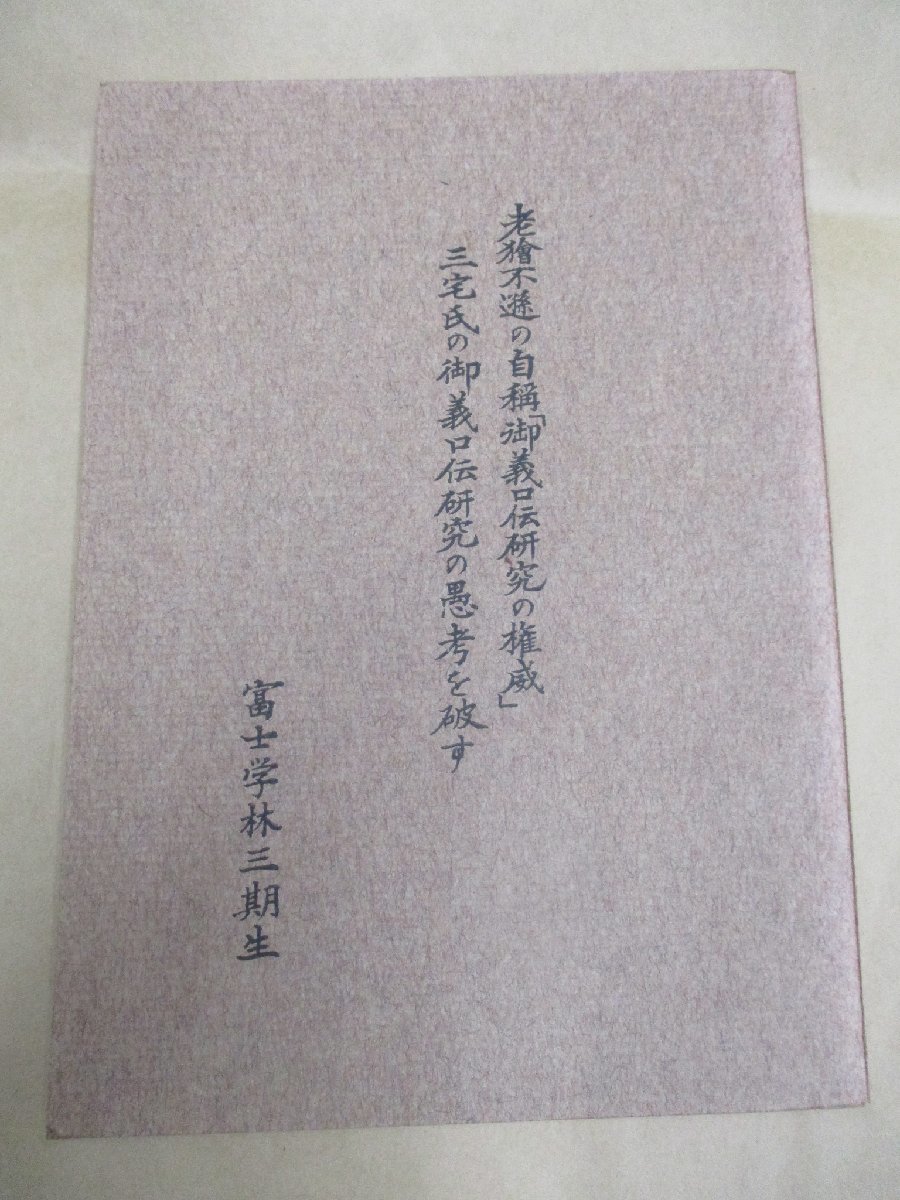 老獪不遜の自称「御義口伝研究の権威」
三宅氏の御義口伝研究の愚考を破す
富士学林三期生